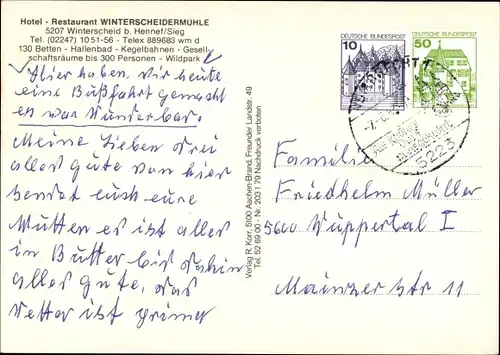 Hotel - Restaurant WINTERSCHEIDERMÜHLE
5207 Winterscheid b. Hennef/Sieg
Tel. (02247) 1051-56 - Telex 889683 wm d
130 Betten - Hallenbad - Kegelbahnen - Gesell-
schaftsräume bis 300 Personen - Wildpark
Hier haben wir heute
eine Bußfahrt gemacht
es war Wunderbar.
Meine Lieben drei
alles gute von hier
sendet euch eure
Mutter es ist alles
in Butter bis dahin
alles gute, das
Wetter ist prima
Verlag R. Korr, 5100 Aachen-Brand, Freunder Landstr. 49
Tel. 52 69 00 - Nr. 203 1 79 Nachdruck verboten
DEUTSCHE BUNDESPOST
10
DEUTSCHE BUNDESPOST
50
5223
Familie
Friedhelm Müller
5600 Wuppertal I
Mainzer str 11